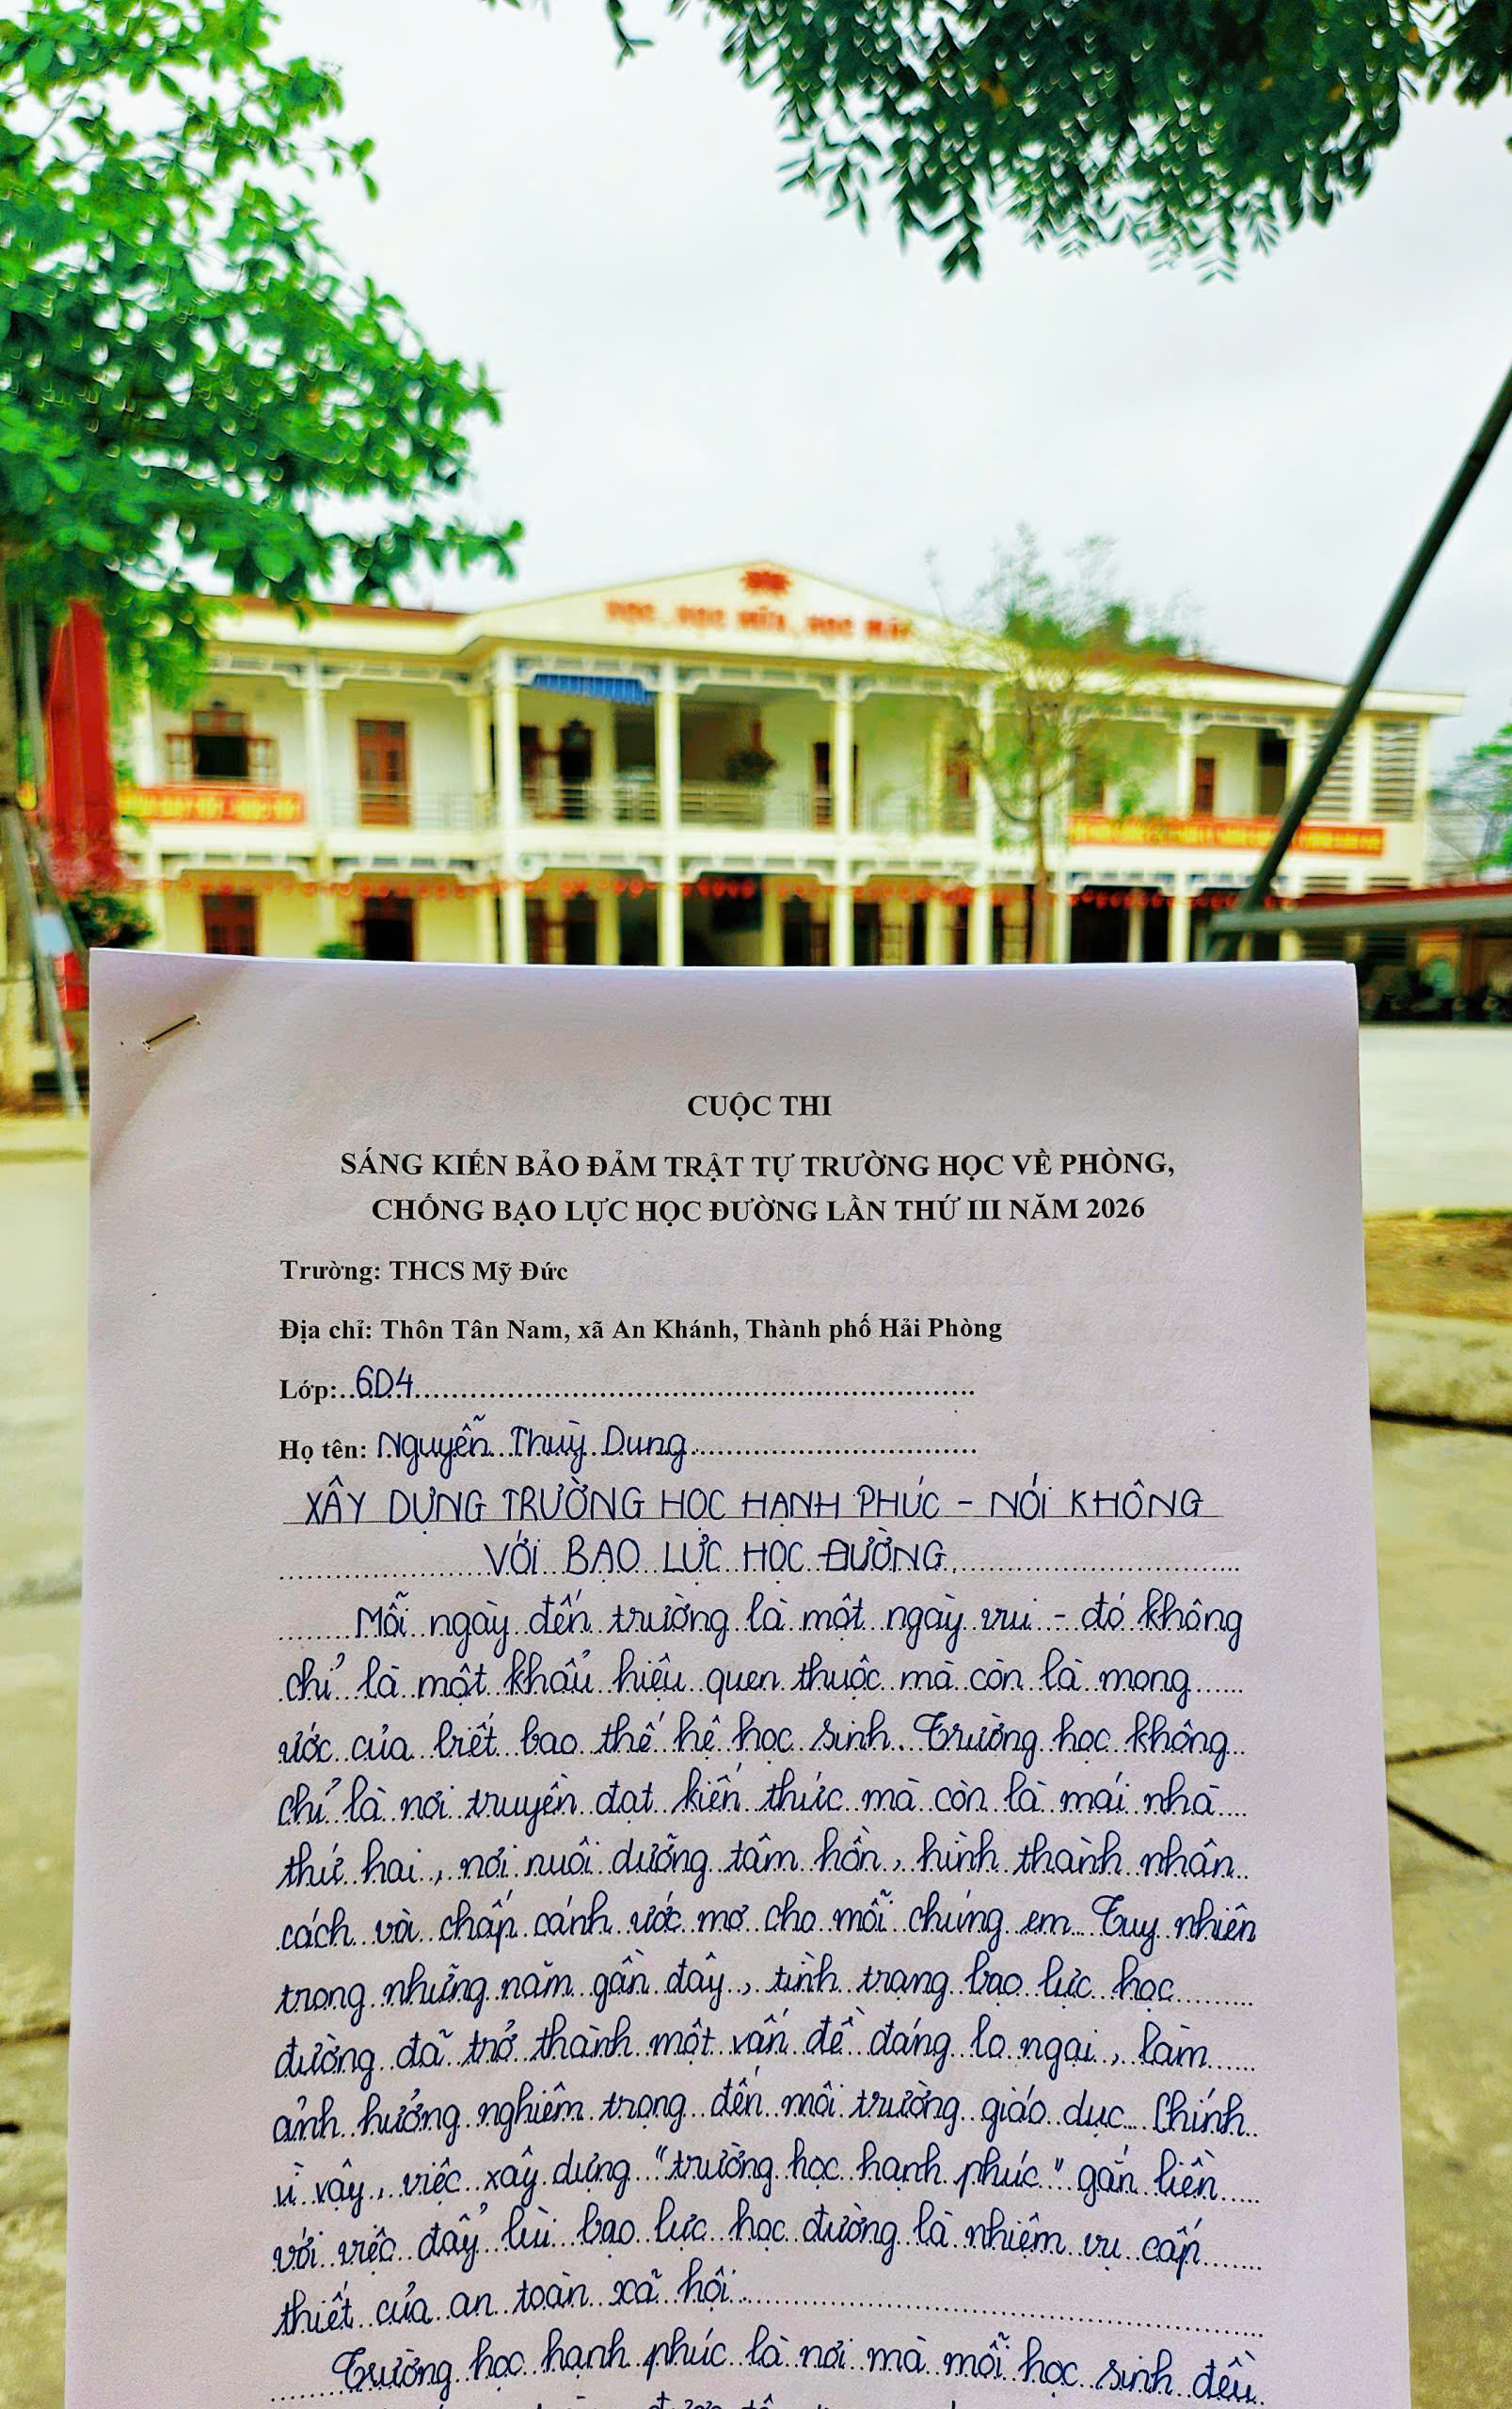 HỌC, HỌC NỮA, HỌC MÃI
CUỘC THI
SÁNG KIẾN BẢO ĐẢM TRẬT TỰ TRƯỜNG HỌC VỀ PHÒNG,
CHỐNG BẠO LỰC HỌC ĐƯỜNG LẦN THỨ III NĂM 2026
Trường: THCS Mỹ Đức
Địa chỉ: Thôn Tân Nam, xã An Khánh, Thành phố Hải Phòng
Lớp: 6D4
Họ tên: Nguyễn Thuỳ Dung
XÂY DỰNG TRƯỜNG HỌC HẠNH PHÚC - NÓI KHÔNG
VỚI BẠO LỰC HỌC ĐƯỜNG
Mỗi ngày đến trường là một ngày vui - đó không
chỉ là một khẩu hiệu quen thuộc mà còn là mong
ước của biết bao thế hệ học sinh. Trường học không
chỉ là nơi truyền đạt kiến thức mà còn là mái nhà
thứ hai, nơi nuôi dưỡng tâm hồn, hình thành nhân
cách và chấp cánh ước mơ cho mỗi chúng em. Tuy nhiên
trong những năm gần đây, tình trạng bạo lực học
đường đã trở thành một vấn đề đáng lo ngại, làm
ảnh hưởng nghiêm trọng đến môi trường giáo dục. Chính
vì vậy, việc xây dựng "trường học hạnh phúc" gắn liền
với việc đẩy lùi bạo lực học đường là nhiệm vụ cấp
thiết của an toàn xã hội.
Trường học hạnh phúc là nơi mà mỗi học sinh đều